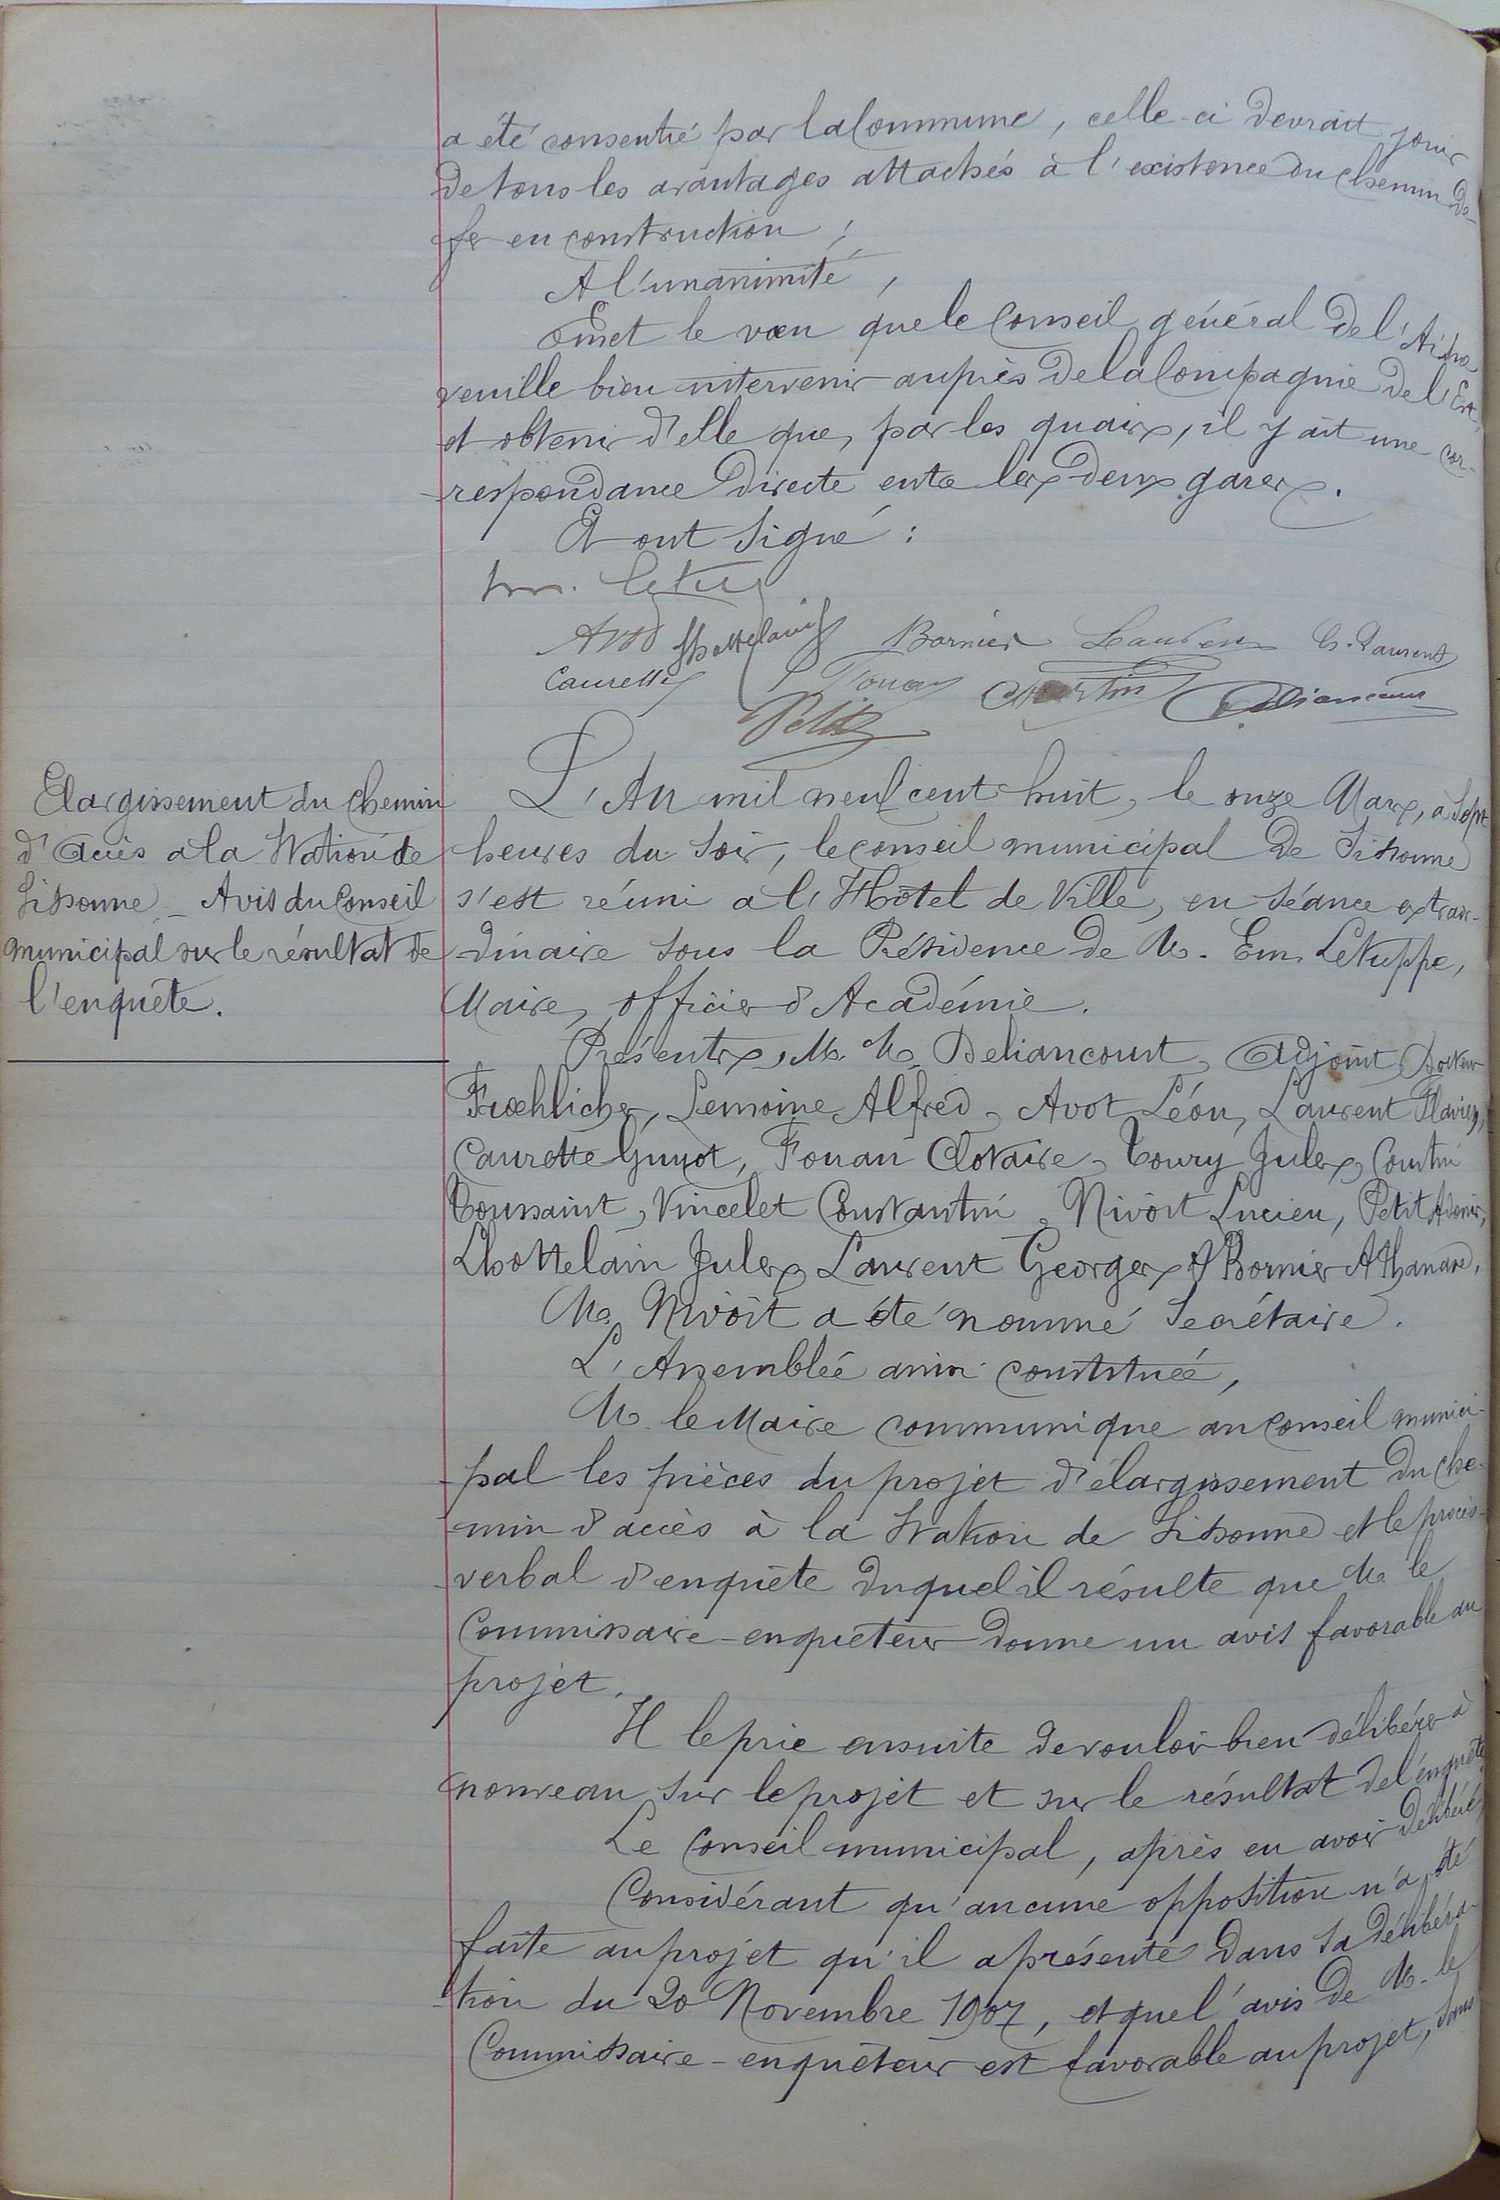 a été consenti par la Commune, celle-ci devrait jouir
de tous les avantages attachés à l'existence du chemin de
fer en construction ;
A l'unanimité,
Emet le vœu que le Conseil général de l'Aisne
veuille bien intervenir auprès de la Compagnie de l'Est
et obtenir d'elle que, par les quais, il y ait une cor-
-respondance directe entre les deux gares.
Et ont signé :
Em. Letuppe
Avot Lhottelain Bornier Laurent G. Laurent
Caurette Fouan Courtin Deliancourt
Petit
Elargissement du chemin
d'accès à la Station de
Sissonne. - Avis du Conseil
municipal sur le résultat de
l'enquête.
L'An mil neuf cent huit, le onze Mars, à sept
heures du soir, le conseil municipal de Sissonne
s'est réuni à l'Hôtel de Ville, en séance extraor-
-dinaire sous la Présidence de M. Em. Letuppe,
Maire, officier d'Académie.
Présents, M. M. Deliancourt, Adjoint, Docteur
Frœhlicher, Lemoine Alfred, Avot Léon, Laurent Flavien,
Caurette Guyot, Fouan Clotaire, Toury Jules, Courtin
Toussaint, Vincelet Constantin, Nivoit Lucien, Petit Adonis,
Lhottelain Jules, Laurent Georges & Bornier Athanase.
M. Nivoit a été nommé Secrétaire.
L'Assemblée ainsi constituée,
M. le Maire communique au Conseil munici-
-pal les pièces du projet d'élargissement du che-
-min d'accès à la Station de Sissonne et le procès-
-verbal d'enquête duquel il résulte que M. le
Commissaire-enquêteur donne un avis favorable au
projet.
Il le prie ensuite de vouloir bien délibérer à
nouveau sur le projet et sur le résultat de l'enquête.
Le Conseil municipal, après en avoir délibéré,
Considérant qu'aucune opposition n'a été
faite au projet qu'il a présenté dans sa délibéra-
-tion du 20 Novembre 1907, et que l'avis de M. le
Commissaire-enquêteur est favorable au projet, sans